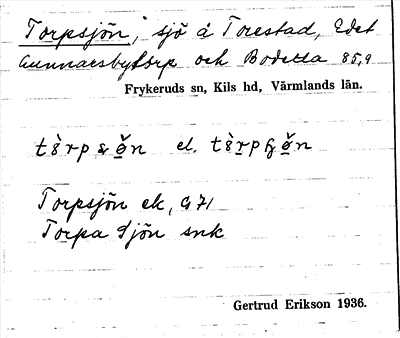 Torpsjön, sjö å Torestad, Edet
Gunnarsbytorp och Bodetta 85,9
Frykeruds sn, Kils hd, Värmlands län.
el.
Torpsjön ek, G71
Torpa Sjön snk
Gertrud Erikson 1936.